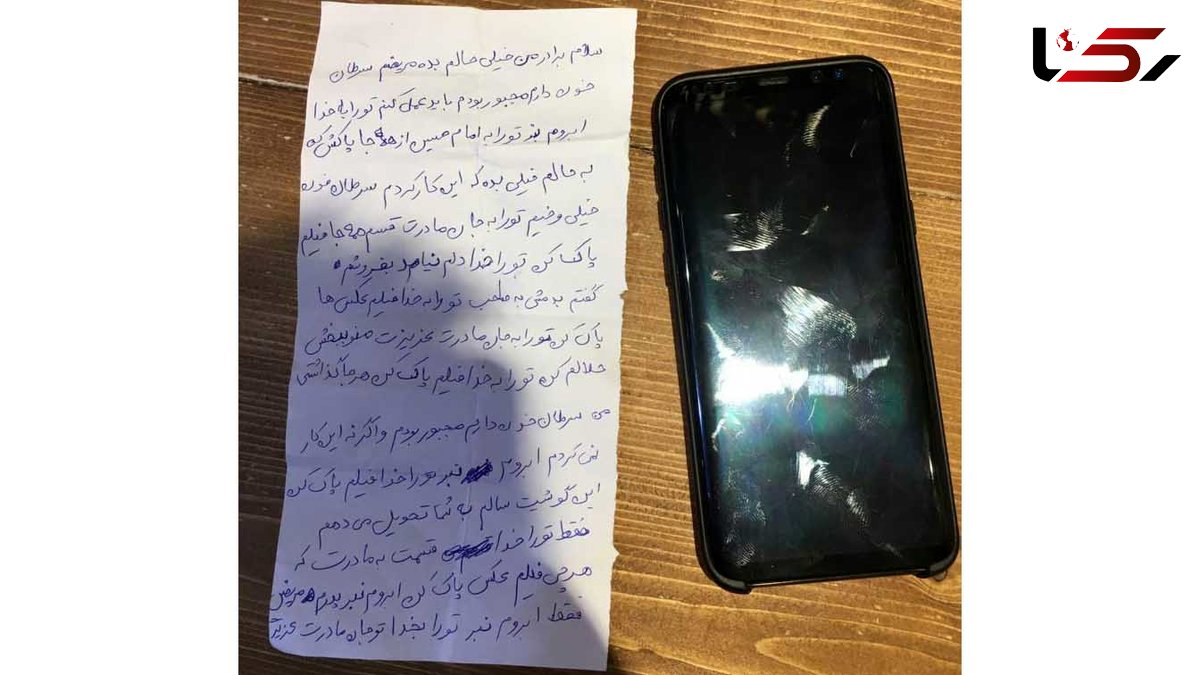 سلام برادر من خیلی حالم بده مریضم سرطان
خون دارم مجبور بودم باید عمل کنم تورا به خدا
ابروم نبر تورا به امام حسین از همه جا پاکش کن
به حالم خیلی بده که این کار کردم سرطان خون
خیلی وخیم تورا به جان مادرت قسم همه جا فیلم
پاک کن تورا خدا دلم نیامد بفروشم
گفتم بدمش به صاحب تورا به خدا فیلم عکس ها
پاک کن تورا به جان مادرت عزیزت منو ببخش
حلالم کن تورا به خدا فیلم پاک کن هرجا گذاشتی
من سرطان خون دارم مجبور بودم واگر نه این کار
نمی کردم ابروم نبر تورا خدا فیلم پاک کن
این گوشیت سالم به شما تحویل می دهم
فقط تورا خدا قسمت به مادرت که
هرچی فیلم عکس پاک کن ابروم نبر مریض
فقط ابروم نبر تورا بخدا تو جان مادرت عزیزت
رکنا